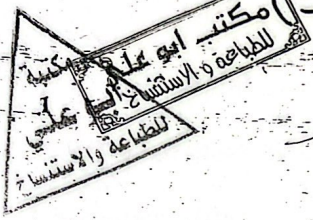 مكتب ابو علي
للطباعة والاستنساخ
مكتبة
علي
للطباعة والاستنساخ